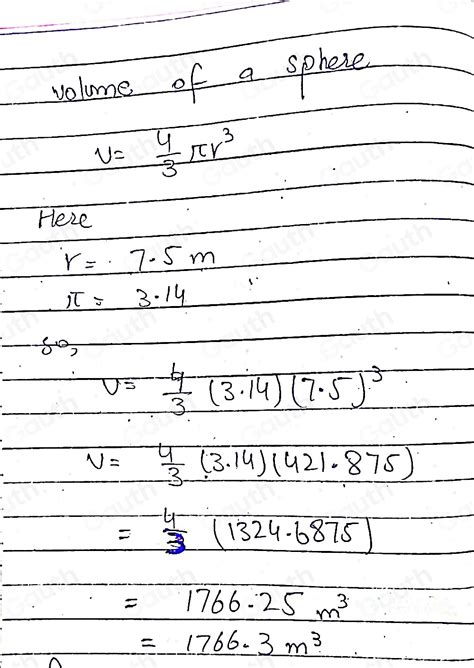 volume of a sphere
V = 4/3 πr³
Here
r = 7.5 m
π = 3.14
so,
V = 4/3 (3.14) (7.5)³
V = 4/3 (3.14) (421.875)
= 4/3 (1324.6875)
= 1766.25 m³
= 1766.3 m³